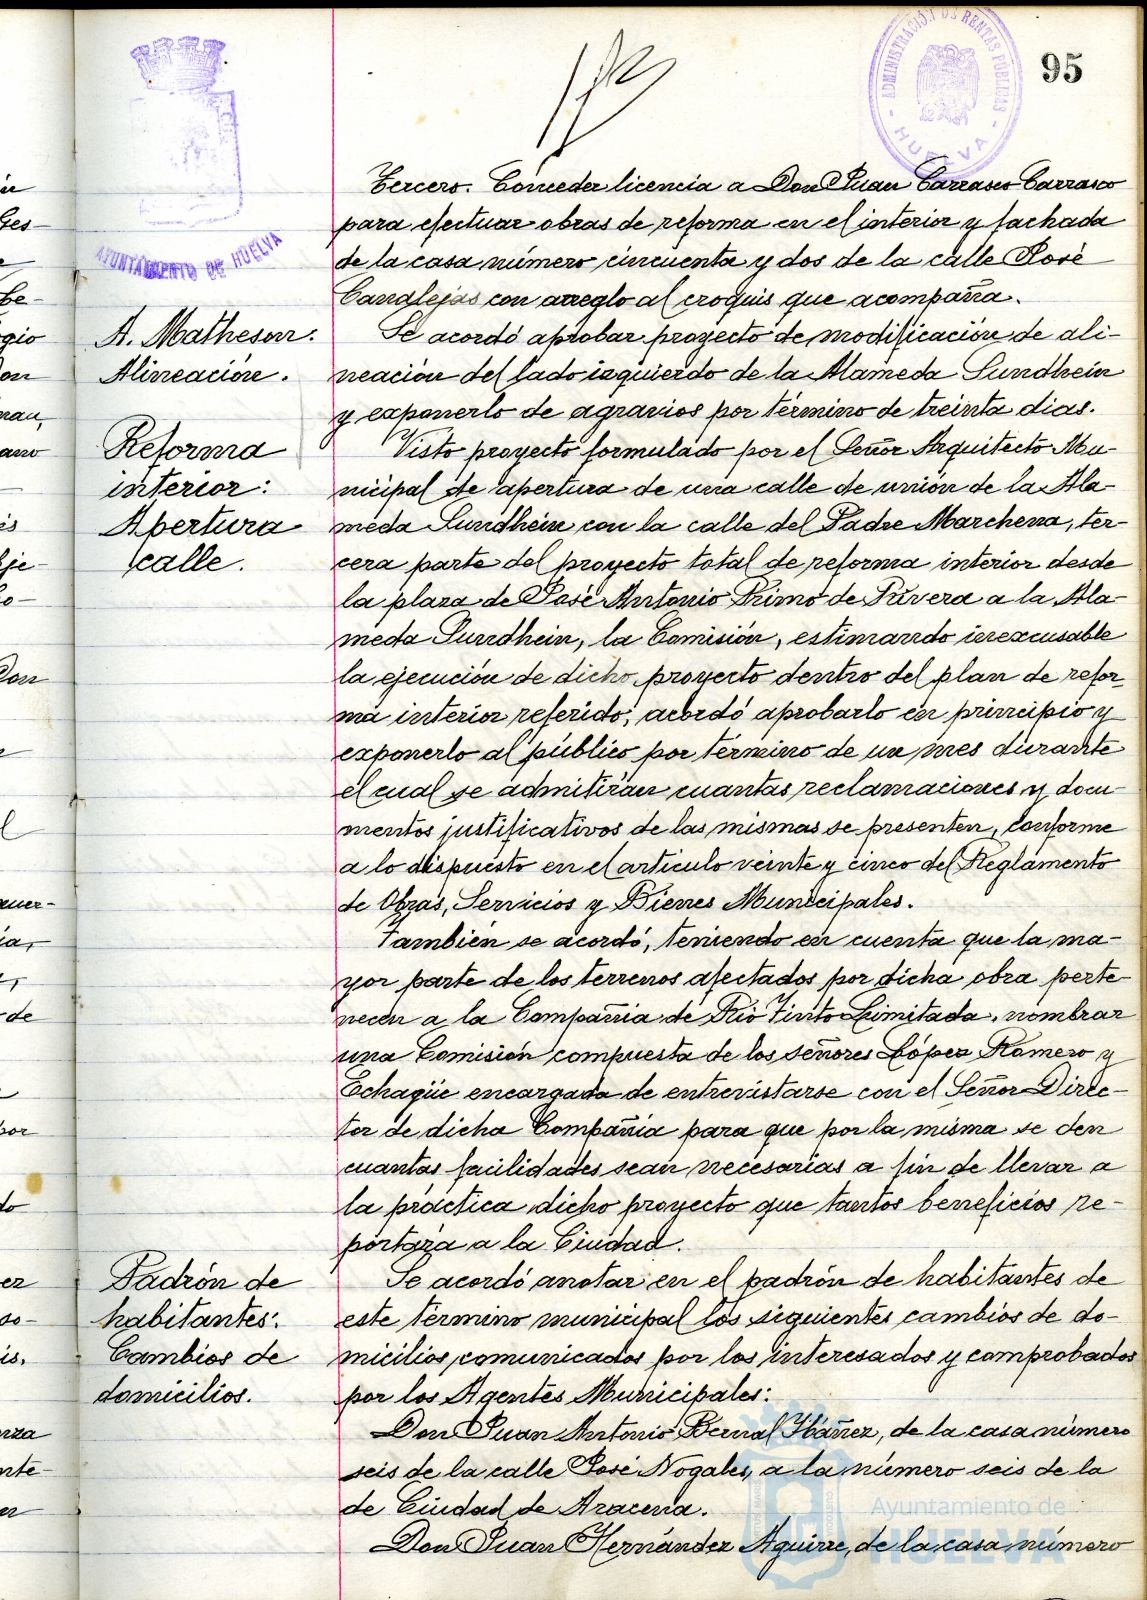 95
ADMINISTRACIÓN DE RENTAS PÚBLICAS
HUELVA
AYUNTAMIENTO DE HUELVA
Tercero. Conceder licencia a Don Juan Carrasco Carrasco
para efectuar obras de reforma en el interior y fachada
de la casa número cincuenta y dos de la calle José
Canalejas con arreglo al croquis que acompaña.
A. Matheson.
Alineación.
Se acordó aprobar proyecto de modificación de ali-
neación del lado izquierdo de la Alameda Sundhein
y exponerlo de agravios por término de treinta dias.
Reforma
interior:
Apertura
calle.
Visto proyecto formulado por el Señor Arquitecto Mu-
nicipal de apertura de una calle de unión de la Ala-
meda Sundhein con la calle del Padre Marchena, ter-
cera parte del proyecto total de reforma interior desde
la plaza de José Antonio Primo de Rivera a la Ala-
meda Sundhein, la Comisión, estimando inexcusable
la ejecución de dicho proyecto dentro del plan de refor-
ma interior referido, acordó aprobarlo en principio y
exponerlo al público por término de un mes durante
el cual se admitirán cuantas reclamaciones y docu-
mentos justificativos de las mismas se presenten, conforme
a lo dispuesto en el artículo veinte y cinco del Reglamento
de Obras, Servicios y Bienes Municipales.
También se acordó, teniendo en cuenta que la ma-
yor parte de los terrenos afectados por dicha obra perte-
necen a la Compañia de Rio Tinto Limitada, nombrar
una Comisión compuesta de los señores López Romero y
Echagüe encargada de entrevistarse con el Señor Direc-
tor de dicha Compañia para que por la misma se den
cuantas facilidades sean necesarias a fin de llevar a
la práctica dicho proyecto que tantos beneficios re-
portara a la Ciudad.
Padrón de
habitantes:
Cambios de
domicilios.
Se acordó anotar en el padrón de habitantes de
este término municipal los siguientes cambios de do-
micilios, comunicados por los interesados y comprobados
por los Agentes Municipales:
Don Juan Antonio Bernal Ibáñez, de la casa número
seis de la calle José Nogales, a la número seis de la
de Ciudad de Aracena.
Don Juan Hernández Aguirre, de la casa número
Ayuntamiento de
HUELVA